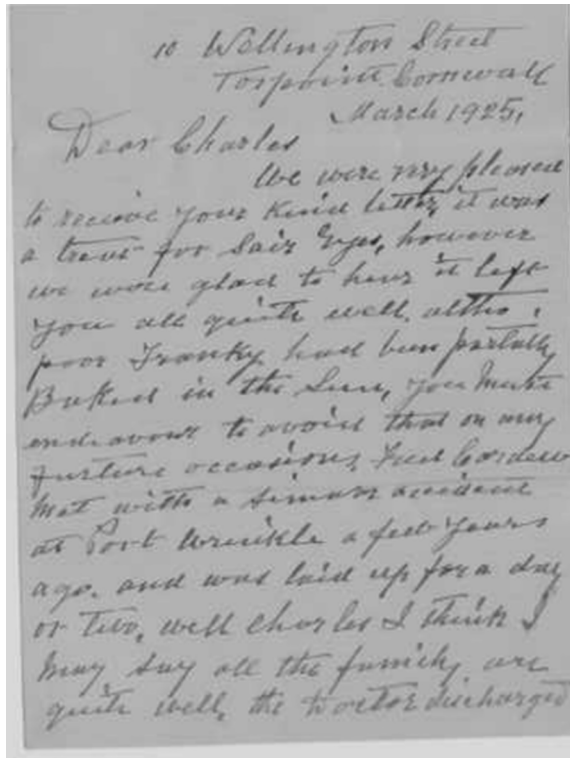 10 Wellington Street
Torpoint. Cornwall
March 1925,
Dear Charles
We were very pleased
to receive your Kind letter, it was
a treat for Sair Eyes, however
we were glad to hear it left
you all quite well, altho,
poor Franky had been partally
Baked in the Sun, you must
endeavour to avoid that on any
furture occasions, Fred Cordew
Met with a simular accident
at Port Wrinkle a few years
ago. and was laid up for a day
or two, well Charles I think I
may say all the family are
quite well, the Doctor discharged